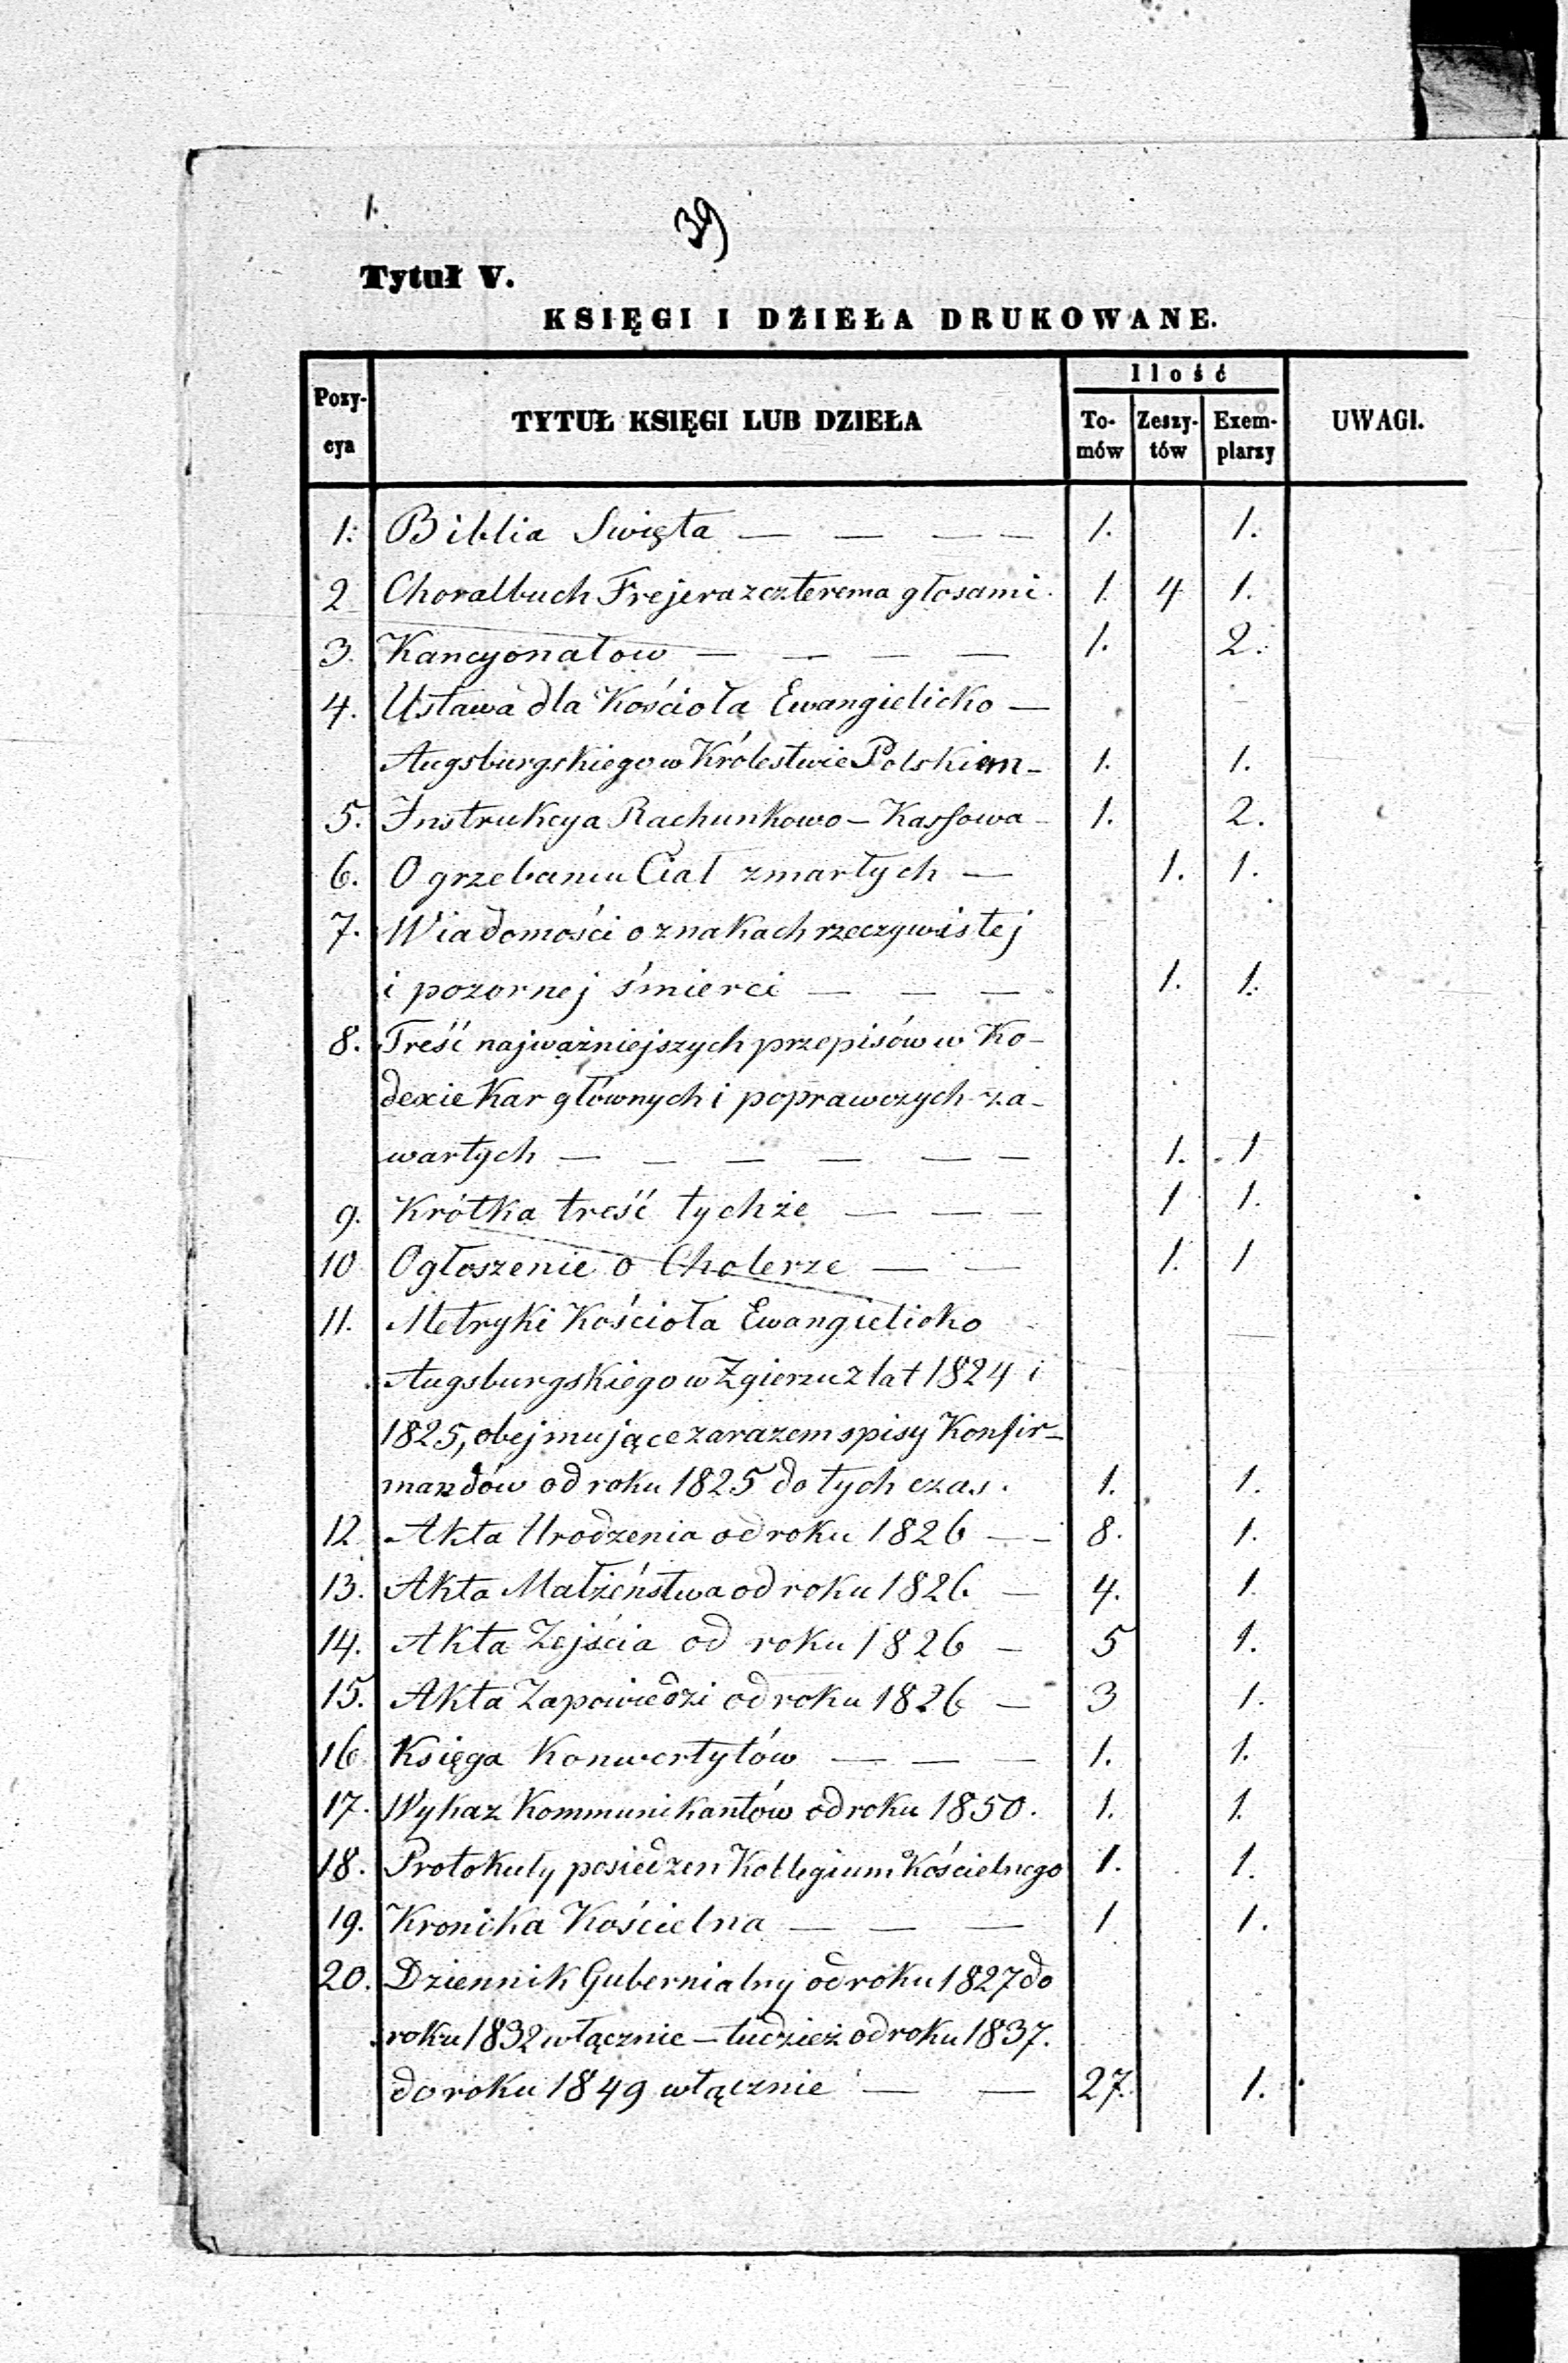 1.
39
Tytuł V.
KSIĘGI I DZIEŁA DRUKOWANE.
Pozy-
cya
TYTUŁ KSIĘGI LUB DZIEŁA
Ilość
To-
mów
Zeszy-
tów
Exem-
plarzy
UWAGI.
1. Biblia Swięta — — — — 1. 1.
2 Choralbuch Frejera z czterema głosami. 1. 4 1.
3. Kancyonałow — — — — 1. 2.
4. Ustawa dla Kościoła Ewangielicko —
Augsburgskiego w Królestwie Polskiem — 1. 1.
5. Instrukcya Rachunkowo – Kassowa — 1. 2.
6. O grzebaniu Ciał zmarłych — 1. 1.
7. Wiadomości o znakach rzeczywistej
i pozornej śmierci — — — 1. 1.
8. Treść najważniejszych przepisów w Ko-
dexie Kar głównych i poprawczych za-
wartych — — — — — — 1. 1
9. Krótka treść tychże — — — 1 1.
10 Ogłoszenie o Cholerze — — 1. 1
11. Metryki Kościoła Ewangielicko
Augsburgskiego w Zgierzu z lat 1824 i
1825, obejmujące zarazem spisy Konfir-
mandów od roku 1825 do tych czas. 1. 1.
12 Akta Urodzenia od roku 1826 — — 8. 1.
13. Akta Małżeństwa od roku 1826. — 4. 1.
14. Akta Zejścia od roku 1826 — 5 1.
15. Akta Zapowiedzi od roku 1826 — 3 1.
16 Księga Konwertytów — — — 1. 1.
17. Wykaz Kommunikantów od roku 1850. 1. 1.
18. Protokuły posiedzen Kollegium Kościelnego 1. 1.
19. Kronika Kościelna — — — 1 1.
20. Dziennik Gubernialny od roku 1827 do
roku 1832 włącznie – tudzież od roku 1837.
do roku 1849 włącznie — — 27. 1.